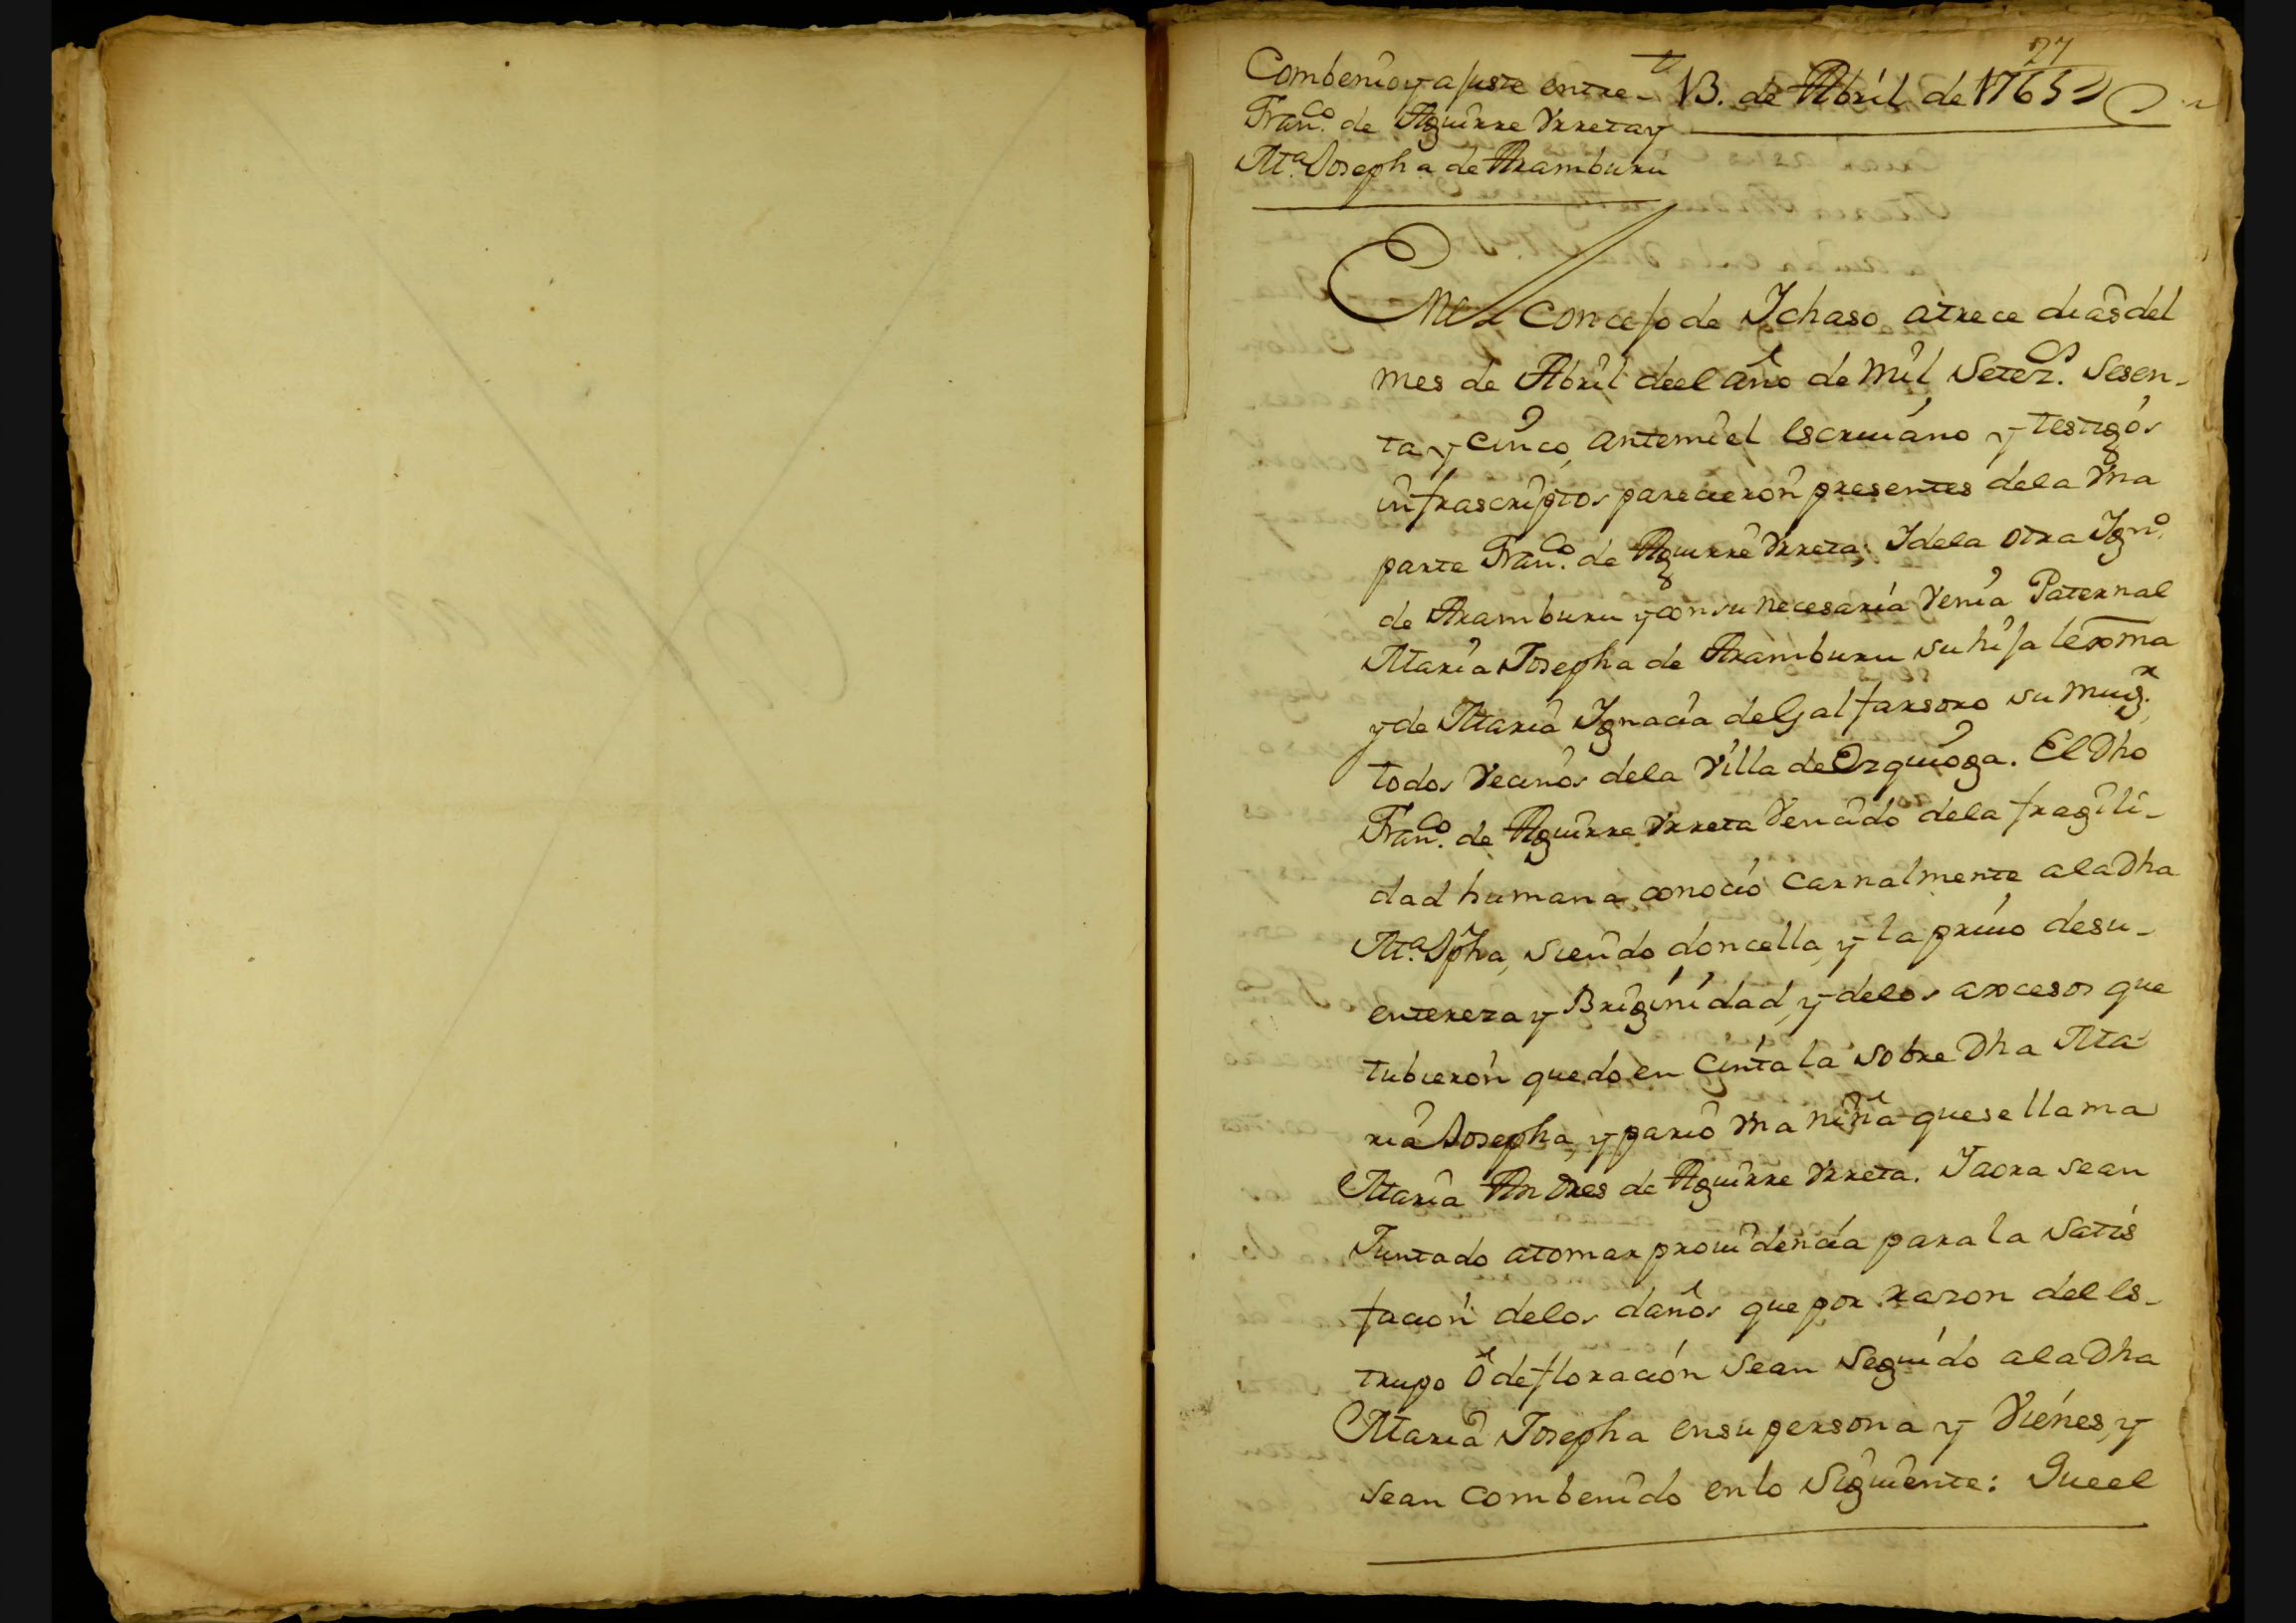 27
Combenio y ajuste entre
Franco. de Aguirre Vrreta y
Ma. Josepha de Aramburu
13. de Abril de 1765
En el Concejo de Ichaso atrece dias del
mes de Abril deel año de mil Setezs. Sesen-
ta y Cinco, antemi el escriuano y testigos
infrascriptos parecieron presentes dela Vna
parte Franco. de Aguirre Vrreta; I dela otra Igno.
de Aramburu y con su necesaria Venia Paternal
Maria Josepha de Aramburu su hija lexma
y de Maria Ignacia de Galfarsoro su mugr.
todos Vecinos dela Villa de Ezquioga. El Dho
Franco. de Aguirre Vrreta Vencido dela fragili-
dad humana conocio carnalmente ala Dha
Ma. Jpha, siendo doncella, y la priuo desu-
entereza y Briginidad, y delos axcesos que
tubieron quedo en Cinta la sobre Dha Ma-
ria Josepha, y pario Vna niña que se llama
Maria Andres de Aguirre Vrreta. I aora sean
Juntado atomar prouidencia para la Satis
facion delos daños que por razon del es-
trupo ô defloracion sean Seguido ala Dha
Maria Josepha ensu persona y Vienes, y
sean combenido enlo Siguiente: Que el